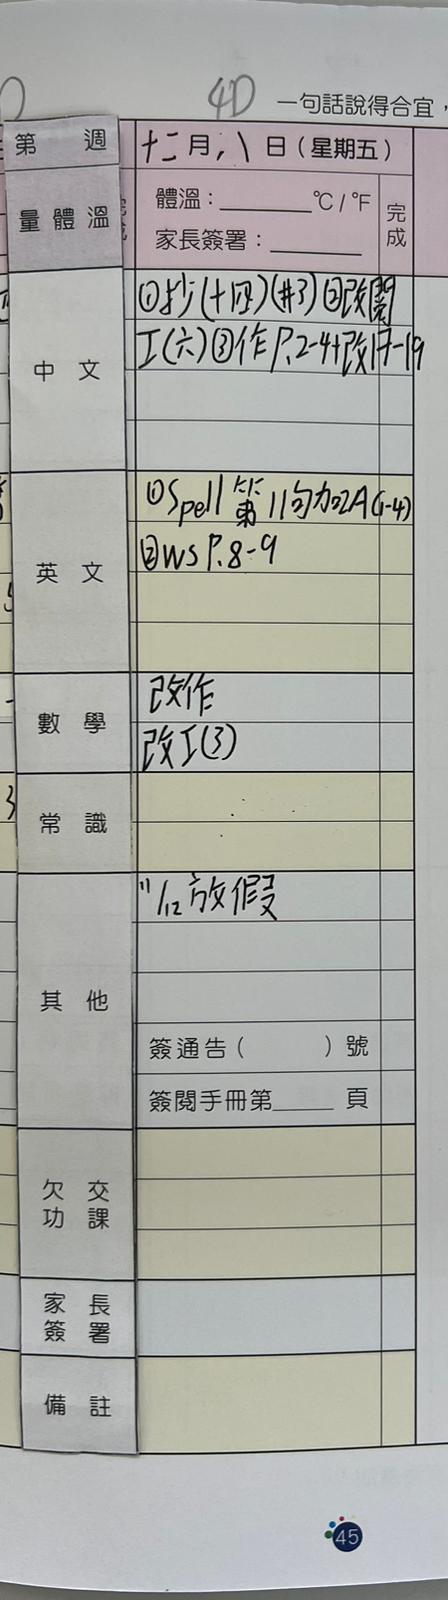 4D
一句話說得合宜，
第 週 十二月八日（星期五）
量體溫
體溫：________°C/°F
家長簽署：________
完成
中文
①抄(十四)(#3)②改閱
工(六)③作P.2-4+改17-19
英文
①Spell 第11句加2A(1-4)
②WS P.8-9
數學
改作
改工(3)
常識
其他
11/12放假
簽通告（ ）號
簽閱手冊第_____頁
欠交
功課
家長
簽署
備註
45